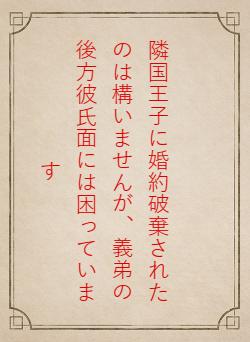 隣国王子に婚約破棄された
のは構いませんが、義弟の
後方彼氏面には困っていま
す